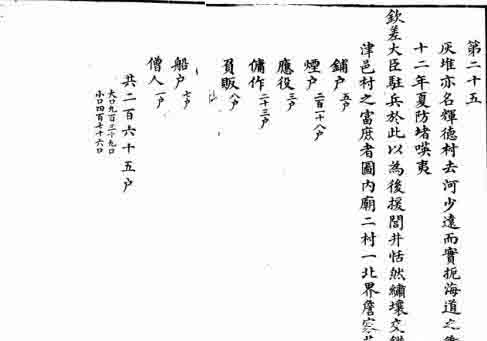 第二十五
灰堆亦名輝德村去河少遠而實扼海道之
十二年夏防堵𠸄夷
欽差大臣駐兵於此以為後援閭井恬然繡壤交錯
津邑村之富庶者圖內廟二村一北界詹家
鋪户 五户
煙户 二百一十八户
應役 三户
傭作 二十三户
負販 八户
船户 七户
僧人 一户
共二百六十五户
大口九百三十九口
小口四百七十六口